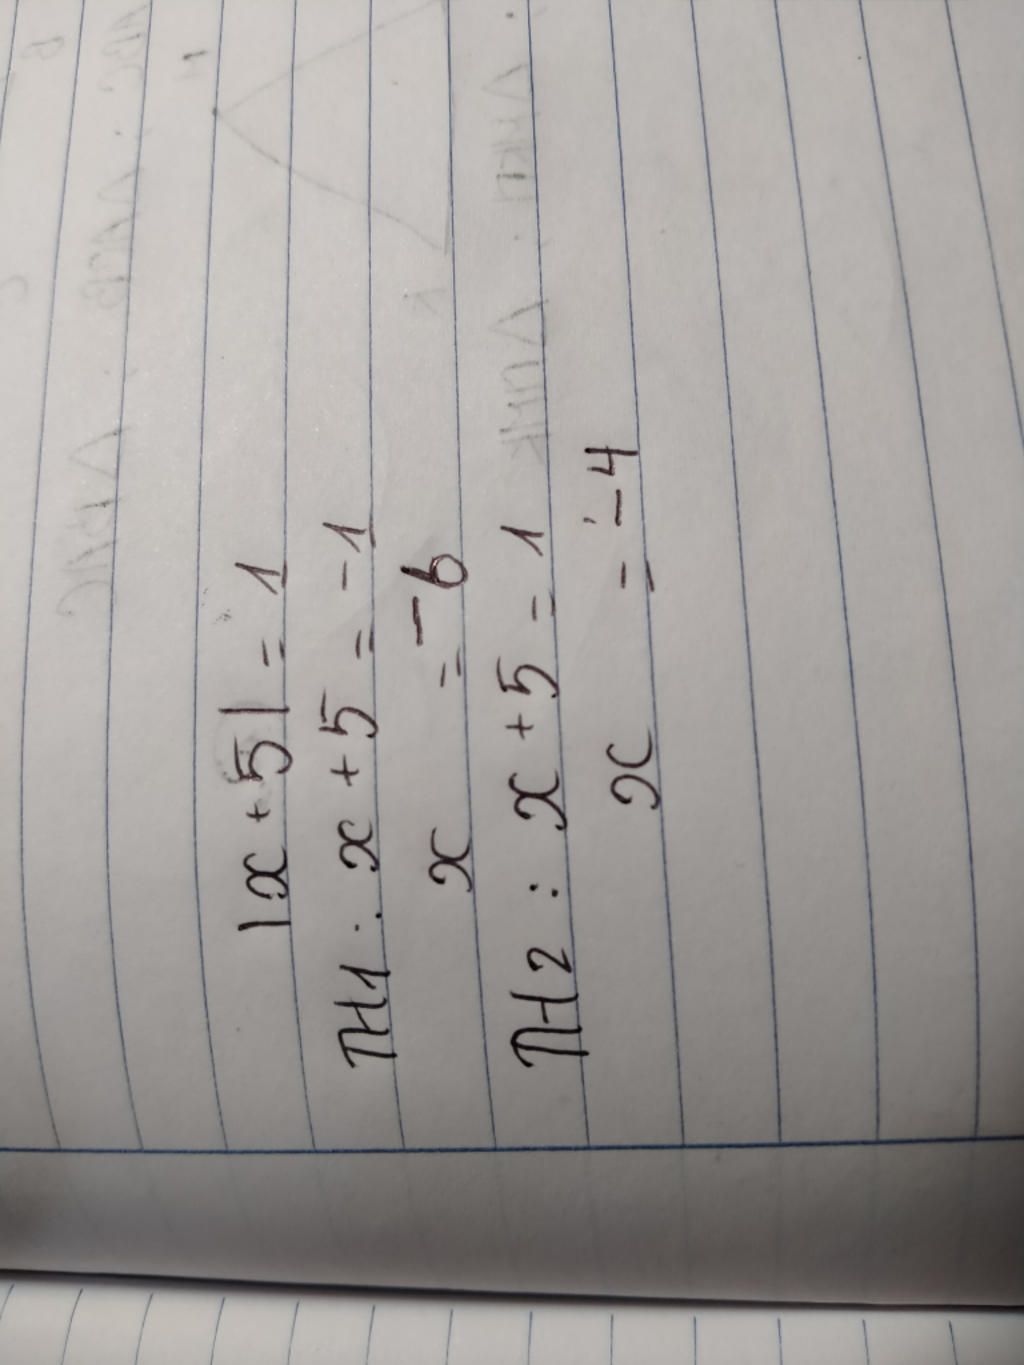 |x + 5| = 1
TH1 : x + 5 = -1
x = -6
TH2 : x + 5 = 1
x = -4